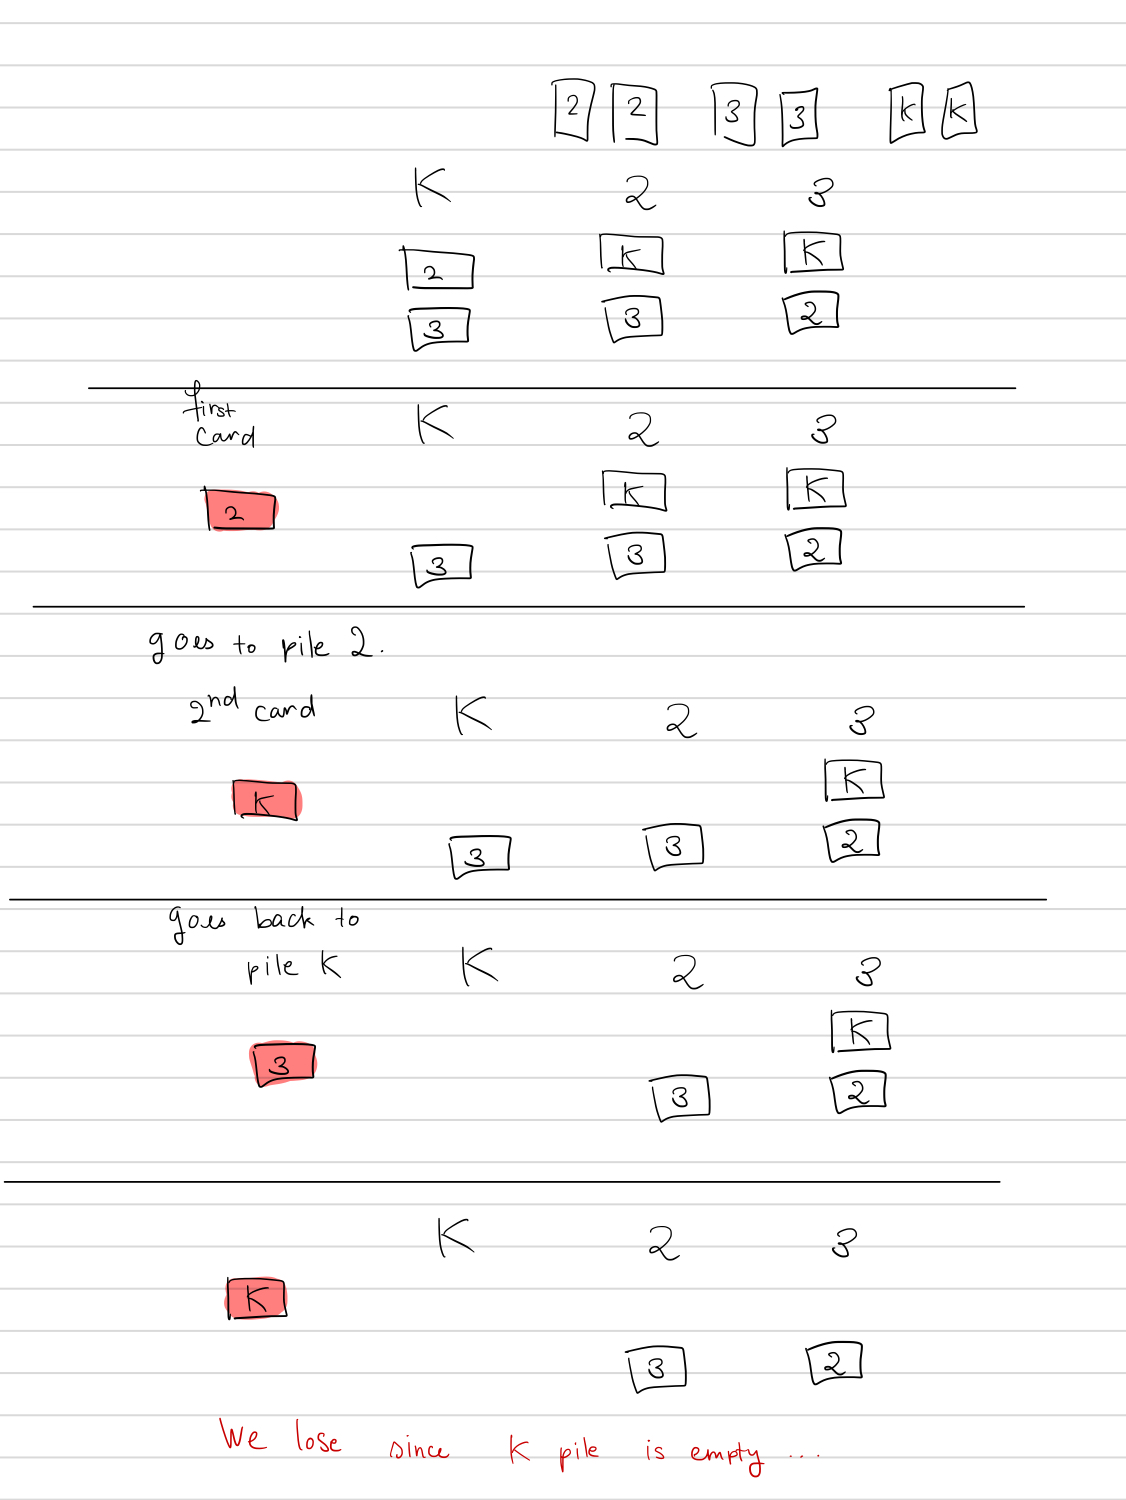 2 2 3 3 K K
K 2 3
2 K K
3 3 2
first
card K 2 3
2 K K
3 3 2
goes to pile 2.
2nd card K 2 3
K K
3 3 2
goes back to
pile K K 2 3
3 K
3 2
K 2 3
K
3 2
We lose since K pile is empty ...